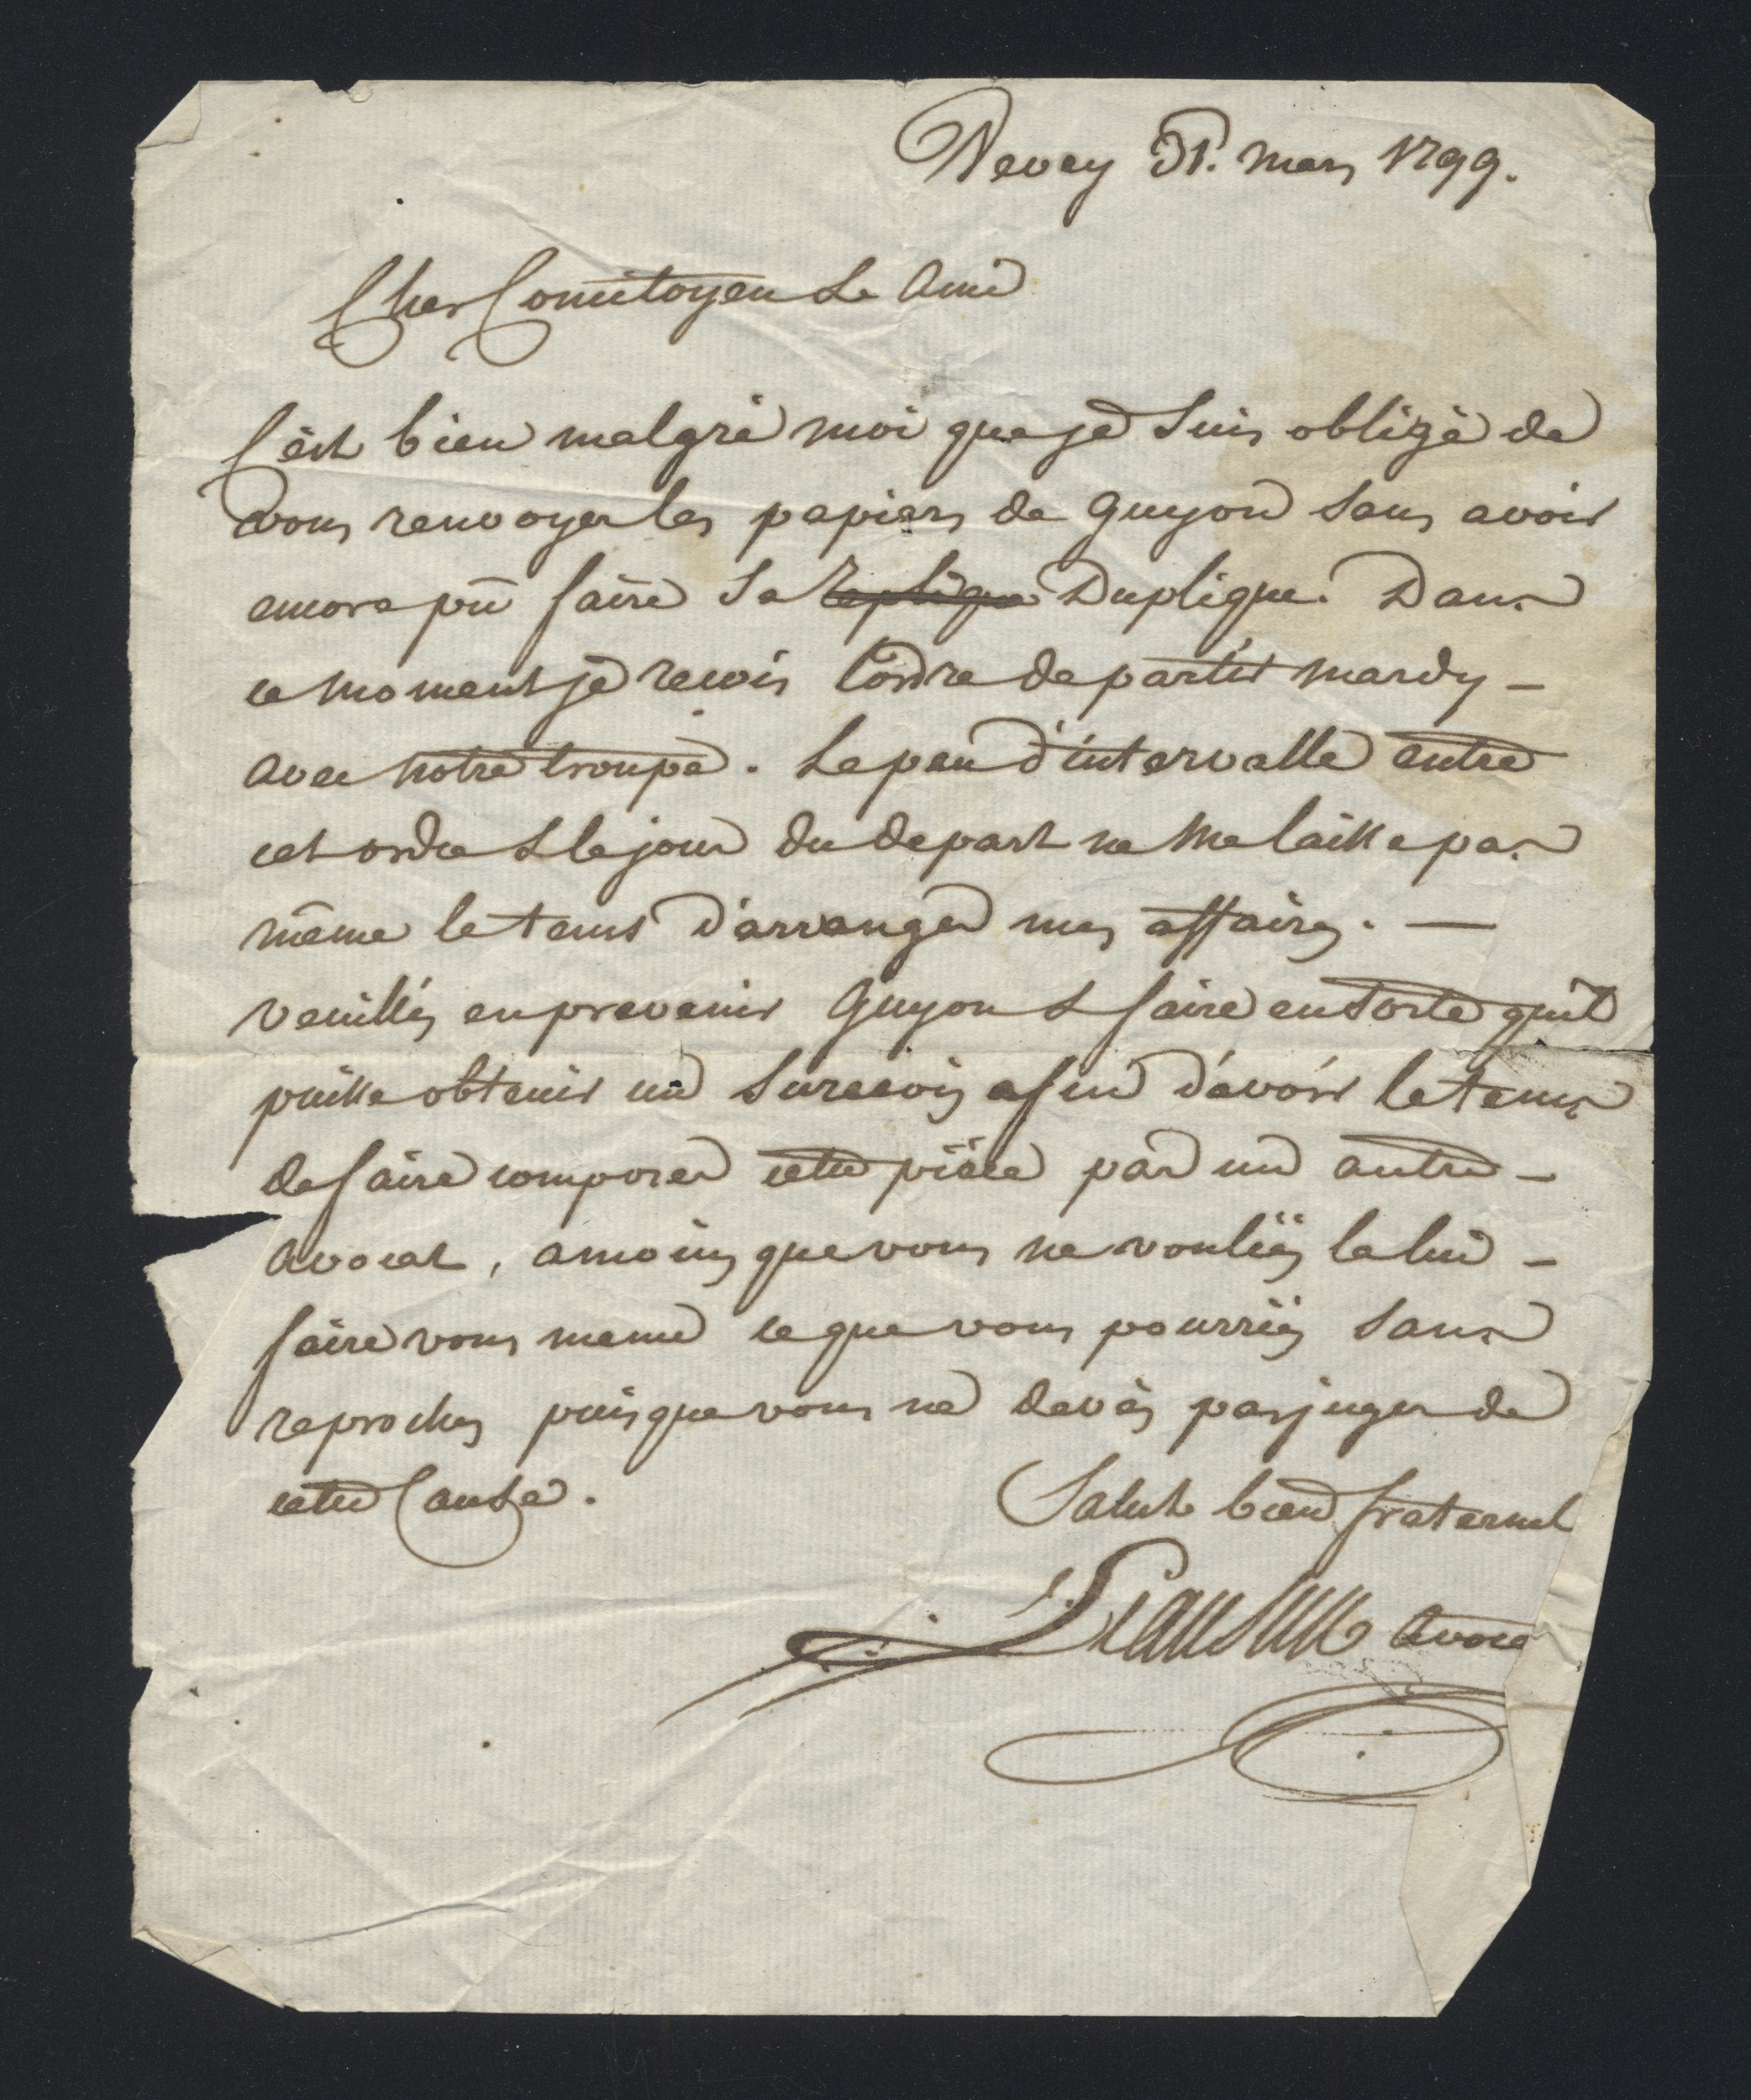 Vevey 31. mars 1799.
Cher Concitoyen & Ami
C'est bien malgré moi que je suis obligé de
vous renvoyer les papiers de Guyon sans avoir
encore pû faire sa replique Duplique. Dans
ce moment je recois l'ordre de partir mardy -
avec notre troupe. Le peu d'intervalle entre
cet ordre & le jour du depart ne me laisse pas
même le tems d'arranger mes affaires. —
veuillés en prevenir Guyon & faire en sorte qu'il
puisse obtenir un surcois afin d'avoir le tems
de faire composer cette pièce par un autre -
avocat, a moins que vous ne vouliés la lui -
faire vous meme ce que vous pourriés sans
reproches puisque vous ne devés pas juger de
cette Cause.
Salut bien fraternel
avoca